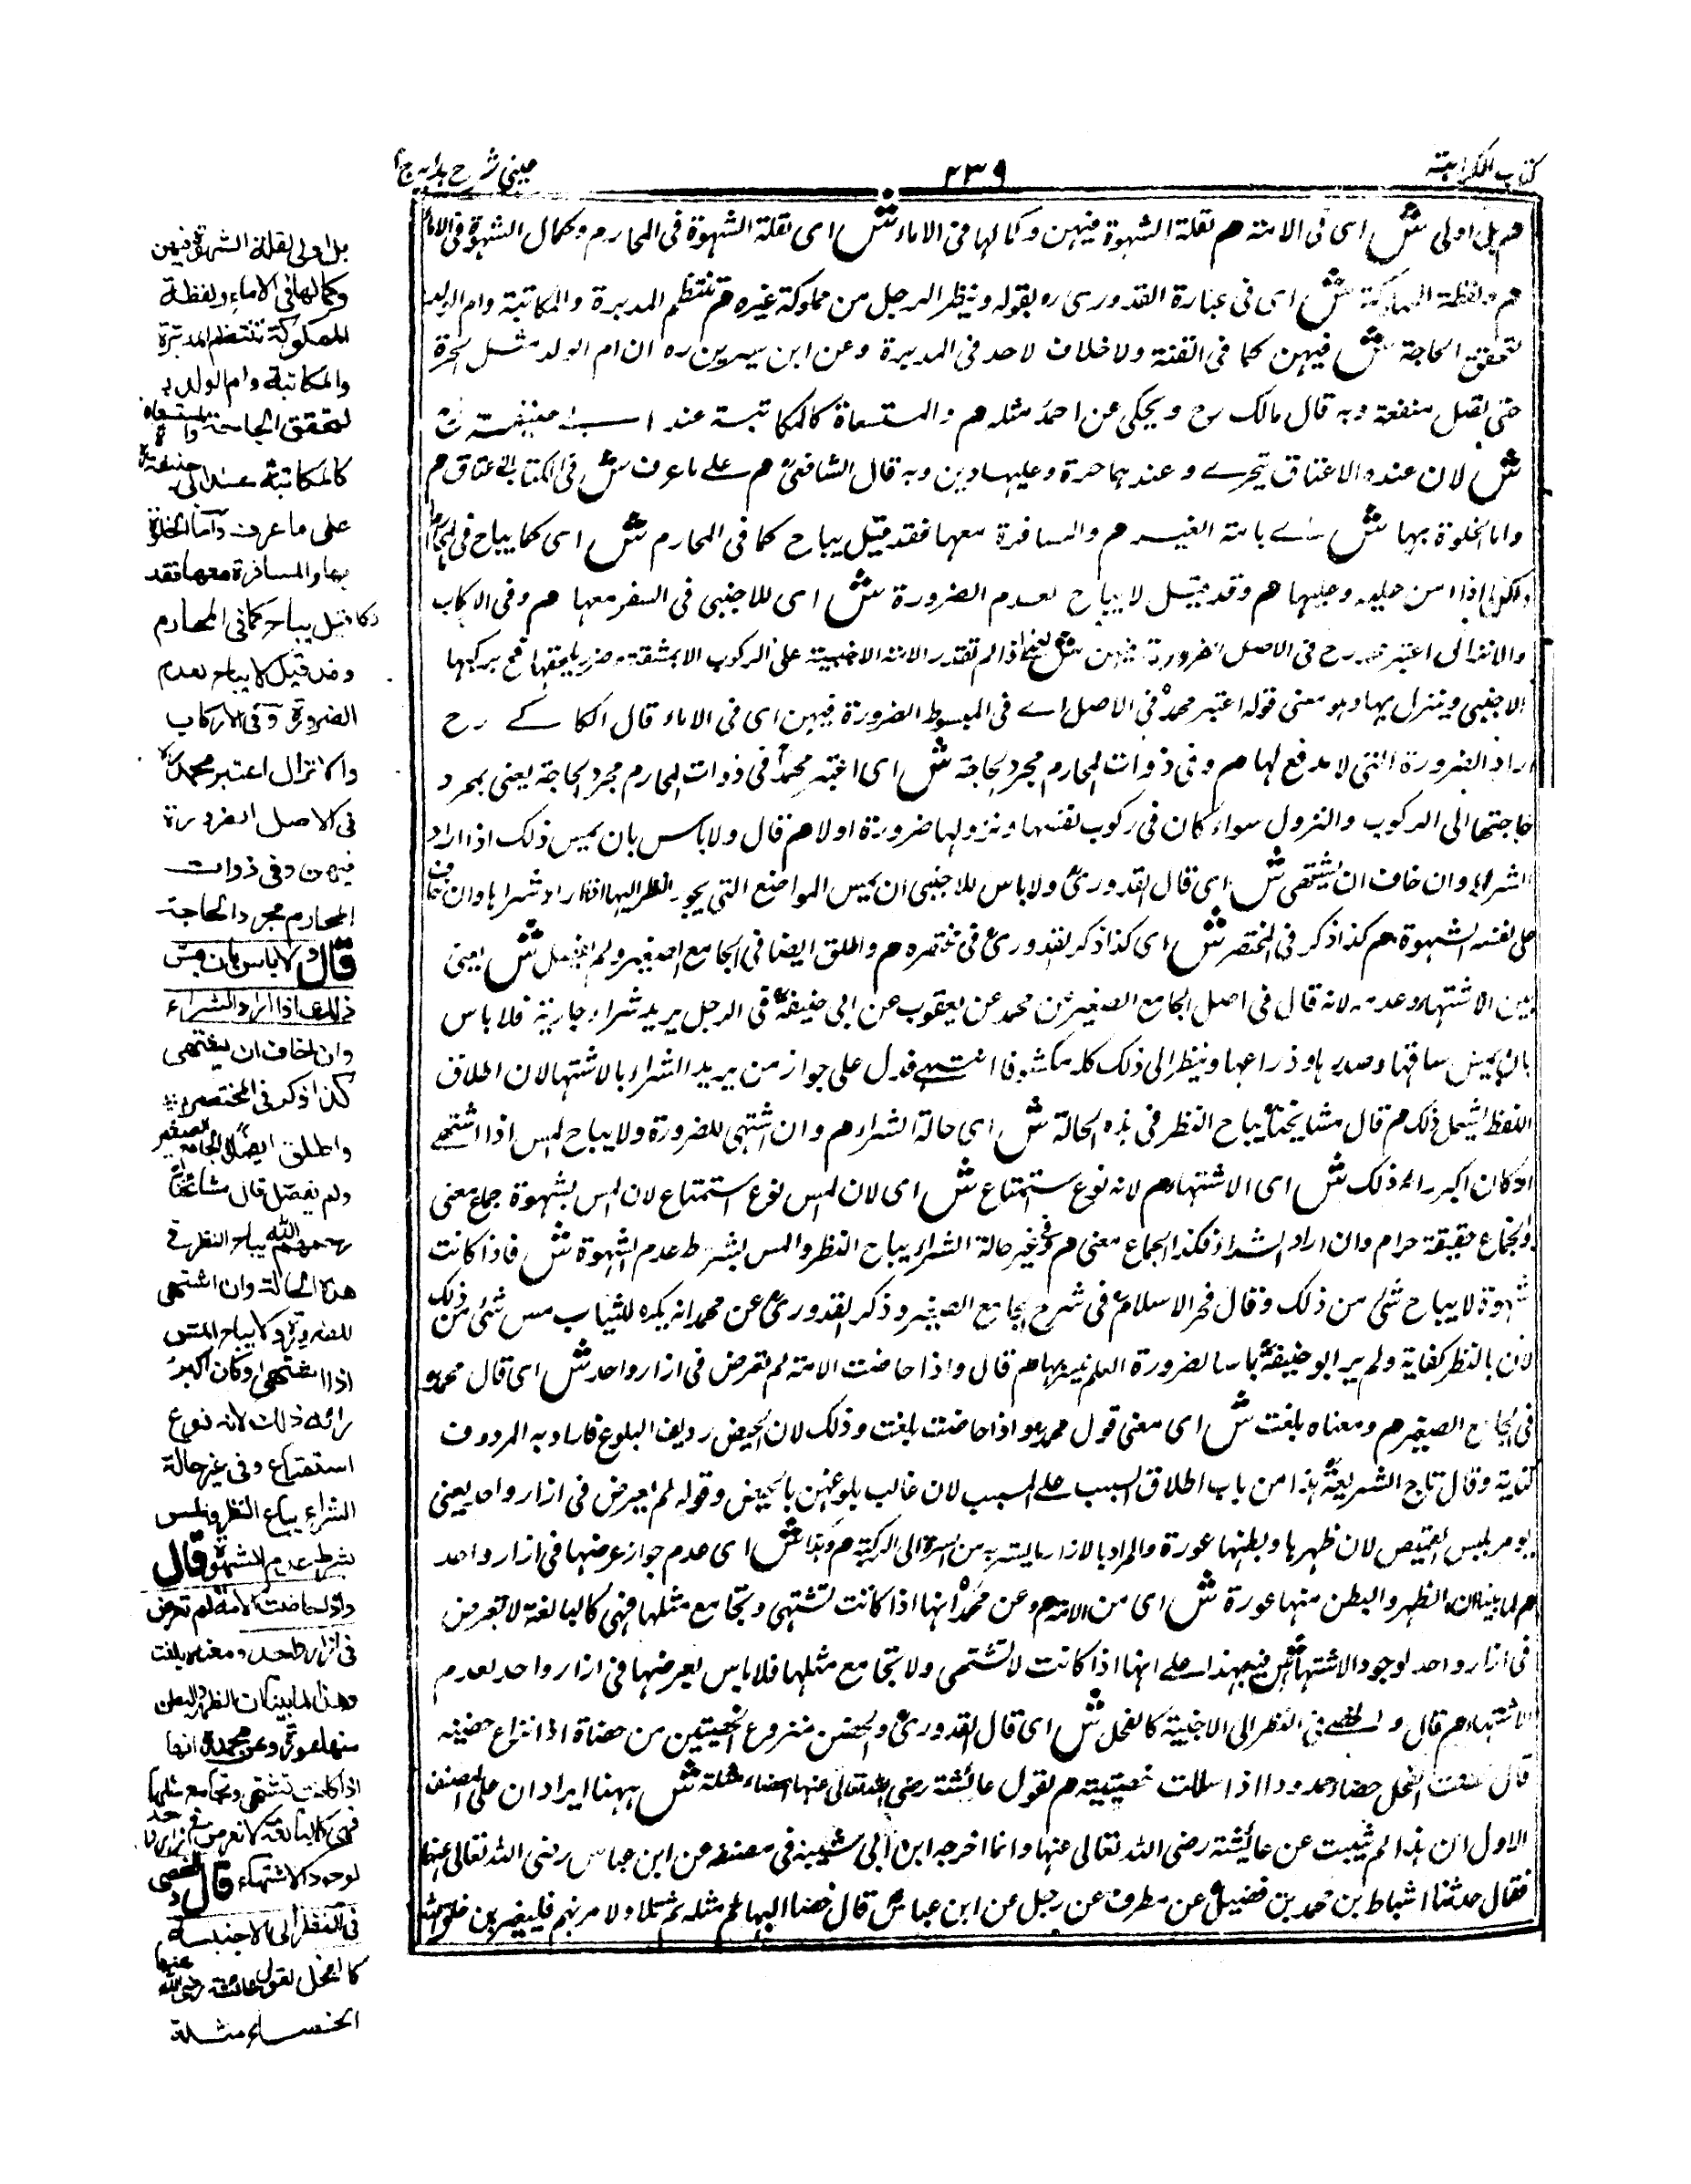 كتاب الكراهية
٢٣٩
عيني شرح هداية ج٤
هم بل اولى ش اى فى الامة هم لقلة الشهوة فيهن وكمالها فى الاماء ش اى لقلة الشهوة فى المحارم وكمال الشهوة فى الاماء
هم ولفظة المملوكة ش اى فى عبارة القدورى رو بقوله وينظر الرجل من مملوكة غيره هم تنتظم المدبرة والمكاتبة وام الولد
لتحقق الحاجة ش فيهن كما فى القنة ولا خلاف لاحد فى المدبرة وعن ابن سيرين ره ان ام الولد مثل الحرة
حتى تصل منفعة وبه قال مالك رح ويحكى عن احمد مثله هم والمستسعاة كالمكاتبة عند ابى حنيفة رح
ش لان عنده الاعتاق يتجزے وعندهما حرة وعليها دين وبه قال الشافعى هم على ما عرف ش فى كتاب العتاق هم
واما الخلوة بها ش اے بامة الغير هم والمسافرة معها فقد قيل يباح كما فى المحارم ش اى كما يباح فى المحارم
اذا امن عليه وعليها هم وقد قيل لا يباح لعدم الضرورة ش اى للاجنبى فى السفر معها هم وفى الاركاب
والانزال اعتبر محمد رح فى الاصل الضرورة فيهن ش اذا لم تقدر الامة الاجنبية على الركوب الا بمشقة وضرر يلحقها فح يركبها
الاجنبى وينزل بها وهو معنى قوله اعتبر محمد فى الاصل اے فى المبسوط الضرورة فيهن اى فى الاماء قال الكاكے رح
اراد الضرورة التى لا مدفع لها هم وفى ذوات المحارم مجرد الحاجة ش اى اعتبر محمد فى ذوات المحارم مجرد الحاجة يعنى بمجرد
حاجتها الى الركوب والنزول سواء كان فى ركوب نفسها ونزولها ضرورة اولا هم قال ولا باس بان يمس ذلك اذا اراد
الشراء وان خاف ان يشتهى ش اى قال القدورى ولا باس للاجنبى ان يمس المواضع التى يجوز النظر اليها اذا اراد شراها وان خاف
على نفسه الشهوة هم كذا ذكر فى المختصر ش اى كذا ذكر القدورى فى مختصره هم واطلق ايضا فى الجامع الصغير ولم يفصل ش يعنى
بين الاشتهاء وعدمه لانه قال فى اصل الجامع الصغير عن محمد عن يعقوب عن ابى حنيفة فى الرجل يريد شراء جارية فلا باس
بان يمس ساقها وصدرها وذراعها وينظر الى ذلك كله مكشوفا انتهے فدل على جواز من يريد الشراء بالاشتها لان اطلاق
اللفظ يشمل ذلك هم قال مشايخنا يباح النظر فى هذه الحالة ش اى حالة الشراء هم وان اشتهى للضرورة ولا يباح لمس اذا اشتهے
او كان اكبر رائه ذلك ش اى الاشتهاء هم لانه نوع استمتاع ش اى لان لمس نوع استمتاع لان لمس بشهوة جماع معنى
والجماع حقيقة حرام وان اراد الشراء فكذا الجماع معنى هم وفى غير حالة الشراء يباح النظر والمس بشرط عدم الشهوة ش فاذا كانت
شهوة لا يباح شئ من ذلك وقال فخر الاسلام فى شرح الجامع الصغير وذكر القدورى عن محمد انه يكره للشاب مس شئ من ذلك
لان بالنظر كفاية ولم ير ابو حنيفة باسا لضرورة العلم ببشرتها هم قال واذا حاضت الامة لم تعرض فى ازار واحد ش اى قال محمد
فى الجامع الصغير هم ومعناه بلغت ش اى معنى قول محمد واذا حاضت بلغت وذلك لان الحيض رديف البلوغ فاراد به المردوف
كناية وقال تاج الشريعة هذا من باب اطلاق السبب على المسبب لان غالب بلوغهن بالحيض وقوله لم تعرض فى ازار واحد يعنى
يومر بلبس القميص لان ظهرها وبطنها عورة والمراد بالازار ما يستر به من السرة الى الركبة هم وهذا ش اى عدم جواز عرضها فى ازار واحد
هم لما بينا ان الظهر والبطن منها عورة ش اى من الامة هم وعن محمد انها اذا كانت تشتهى وتجامع مثلها فهى كالبالغة لا تعرض
فى ازار واحد لوجود الاشتهاء ش فبهذا علم انها اذا كانت لا تشتهى ولا تجامع مثلها فلا باس بعرضها فى ازار واحد لعدم
الاشتهاء هم قال والخصے فى النظر الى الاجنبية كالفحل ش اى قال القدورى والخصى منزوع الخصيتين من خصاه اذا انزع خصيته
قال خصيت الفحل خصاء ممدودا اذا سللت خصيتيه هم لقول عائشة رضى الله تعالى عنها الخصاء مثلة ش ههنا ايرادان على المصنف
الاول ان هذا لم يثبت عن عائشة رضى الله تعالى عنها وانما اخرجه ابن ابى شيبة فى مصنفه عن ابن عباس رضى الله تعالى عنهما
فقال حدثنا اسباط بن محمد بن فضيل عن مطرف عن رجل عن ابن عباس قال خصاء البهائم مثله ثم تلا ولآمرنهم فليغيرن خلق الله
بل اولى لقلة الشهوة فيهن
وكمالها فى الاماء ولفظة
المملوكة تنتظم المدبرة
والمكاتبة وام الولد
لتحقق الحاجة والمستسعاة
كالمكاتبة عند ابى حنيفة
على ما عرف واما الخلوة
بها والمسافرة معها فقد
قيل يباح كما فى المحارم
وقد قيل لا يباح لعدم
الضرورة وفى الاركاب
والانزال اعتبر محمد
فى الاصل الضرورة
فيهن وفى ذوات
المحارم مجرد الحاجة
قال ولا باس بان يمس
ذلك اذا اراد الشراء
وان خاف ان يشتهى
كذا ذكر فى المختصر
واطلق ايضا فى الجامع الصغير
ولم يفصل قال مشائخنا
رحمهم الله يباح النظر فى
هذه الحالة وان اشتهى
للضرورة ولا يباح المس
اذا اشتهى او كان اكبر
رائه ذلك لانه نوع
استمتاع وفى غير حالة
الشراء يباح النظر والمس
بشرط عدم الشهوة قال
واذا حاضت الامة لم تعرض
فى ازار واحد ومعناه بلغت
وهذا لما بينا ان الظهر والبطن
منها عورة وعن محمد انها
اذا كانت تشتهى وتجامع مثلها
فهى كالبالغة لا تعرض فى ازار واحد
لوجود الاشتهاء قال والخصى
فى النظر الى الاجنبية
كالفحل لقول عائشة رضى الله عنها
الخصاء مثلة